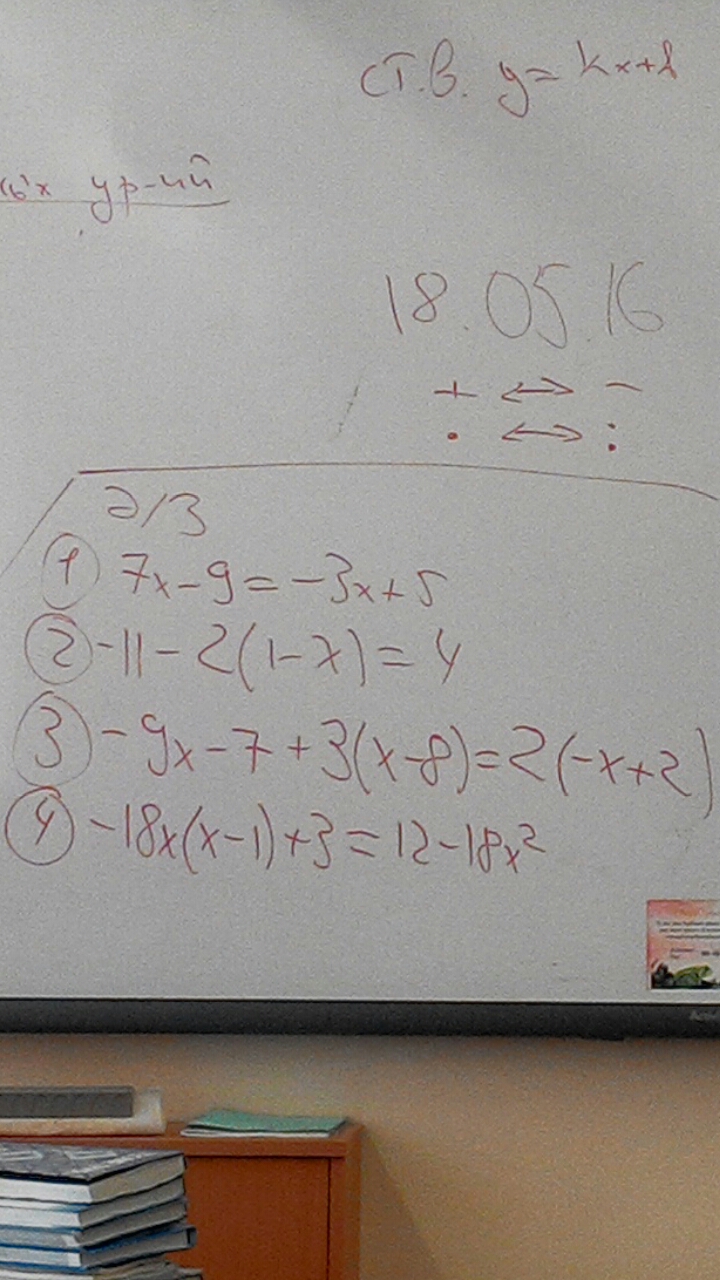 ст.в. y = kx+b
ых ур-ий
18.05.16
+ ↔ −
· ↔ :
д/з
① 7x−9=−3x+5
② −11−2(1−x)=4
③ −9x−7+3(x−8)=2(−x+2)
④ −18x(x−1)+3=12−18x²